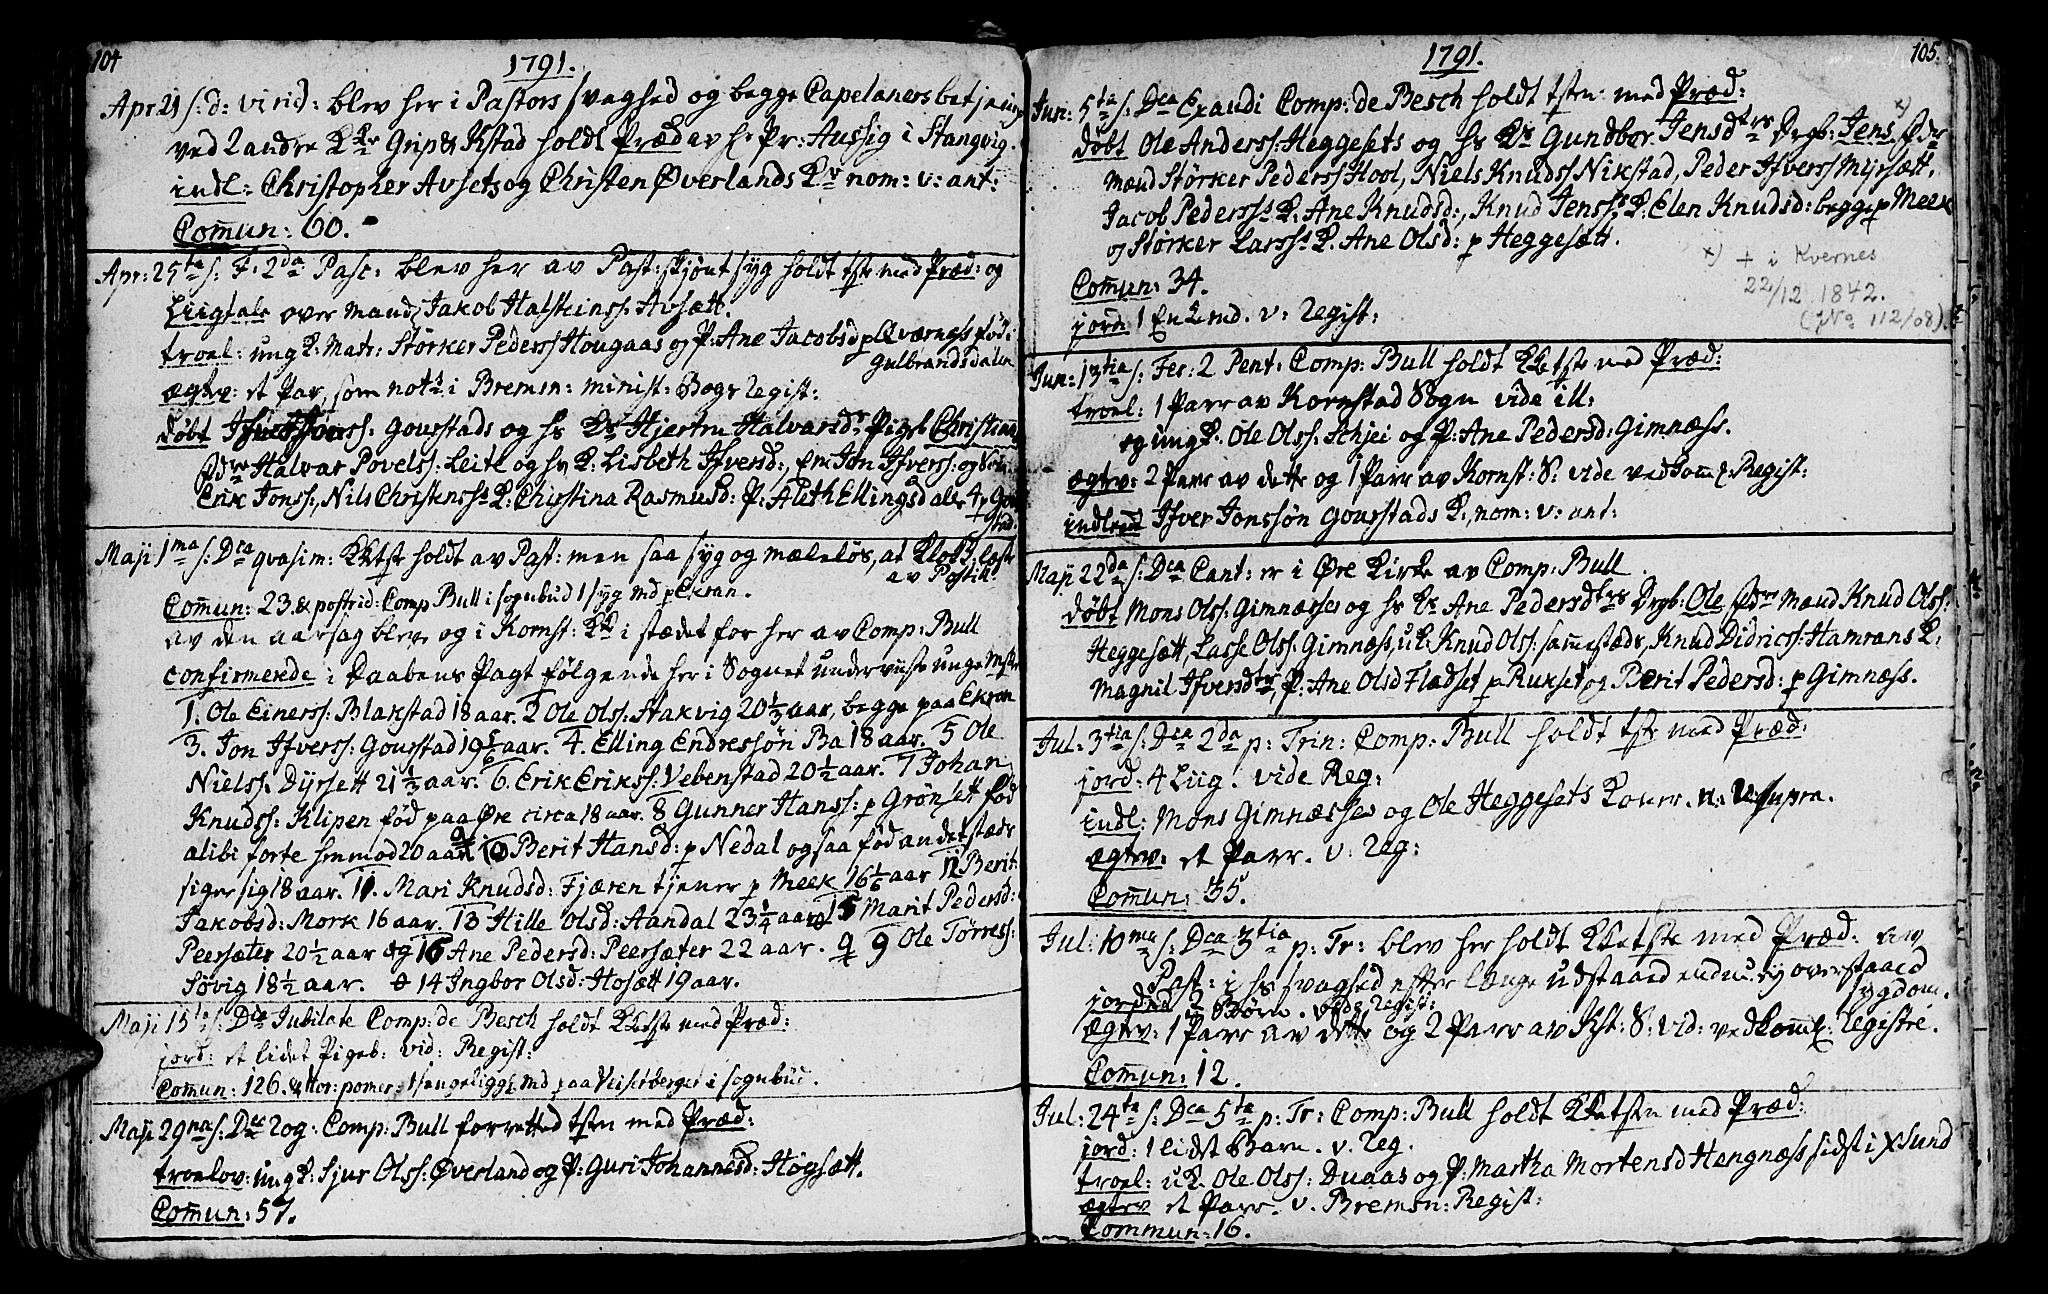 104
1791.
Apr: 21 s: d: virid: blev her i Pastors svaghed og begge Capelaners betjening
ved 2 andre Grip & Kstad holdt Præd av hr Pr: Aussig i Stangvig.
indl: Christopher Avsets og Christen Øverlands K nom: v: ant:
Comun: 60.
Apr: 25 s: F: 2da Pasc: blev her av Past: skjønt syg holdt tste med Præd: og
Liigtale over Mand Jakob Halsteinss: Avsætt.
troel: ung K: Matr: Størker Pederss Hougaas og P: Ane Jacobsd p Qværnæss fød i
Gulbrandsdalen
ægtv: et Par, som nots i Bremsn: minist: Bogs Regist:
døbt Gourstads og hs K Hjertru Halvarsdr Pigeb Christianna
Halvar Povelss: Leite og hs K: Lisbeth Ifversd:, Em Jon Ifverss: og
Erik Jonss:, Nils Christenss K: Christina Rasmusd: P: Aleth Ellingsd ale 4 p Gour
stad:
Maji 1ma s: Dca qvasim: KKtst holdt av Past: men saa syg og mæleløs, at Klokk. læste
av Postill.
Comun: 23. & postrid: Comp Bull i sognbud 1 syg md p Ekran.
av den aarsag blev og i Kornst: KK i stædet for her av Comp: Bull
confirmerede i Daabens Pagt følgende her i Sognet underviiste unge Msker
1. Ole Einerss: Blakstad 18 aar. 2 Ole Olss: Stakvig 20 1/3 aar, begge paa Ekran
3. Jon Ifverss: Gourstad 19 5/6 aar. 4. Elling Endressøn Ba 18 aar. 5 Ole
Nielss: Dyrsett 21 1/3 aar. 6. Erik Erikss: Vebenstad 20 1/2 aar. 7 Johan
Knudss: Klipen fød paa Øre circa 18 aar. 8 Gunner Hanss: p Grønsett fød
alibi forte henmod 20 aar. 10 Berit Hansd: p Nedal ogsaa fød andetstæds
siger sig 18 aar. 11. Mari Knudsd: Fjæren tjener p Meek 16 1/6 aar 12 Berit
Jakobsd: Mork 16 aar. 13 Hille Olsd: Aandal 23 1/4 aar 15 Marit Pedersd:
Peersæter 20 1/2 aar og 16 Ane Pedersd: Peersæter 22 aar. 9 Ole Tørress:
Søvig 18 1/2 aar. 14 Ingbor Olsd: Hosætt 19 aar.
Maji 15 s: Dca Jubilate Comp: de Besch holdt KKetste med Præd:
jord: et lidet Pigeb: vid: Regist:
Comun: 126. & hor: pomer: 1 sengeligge md paa Veiserberget i sognbud.
Maji 29na s: Dca Rog: Comp: Bull forretted tsten med Præd:
troelov: ung K: Sjur Olss: Øverland og P: Guri Johannesd: Høgsætt.
Comun: 57.
105.
1791.
Jun: 5ta s: Dca Exaudi Comp: de Besch holdt tsten med Præd:
døbt Ole Anderss: Heggesets og hs K Gundbor Jensdtrs Drgb: Jens x)
Mænd Størker Pederss Hool, Niels Knudss Nikstad, Peder Ifverss Myrsætt,
Jacob Pederss K: Ane Knudsd:, Knud Jenss K: Elen Knudsd: begge p Meek
og Størker Larss K. Ane Olsd: p Heggesætt.
x) + i Kvernes
22/12 1842.
(No 112/08).
Comun: 34.
jord: 1 Enkemd. v: Regist:
Jun: 13tia s: Fer: 2 Pent: Comp: Bull holdt KKetste med Præd:
troel: 1 Parr av Kornstad Sogn vide ill:
og ung K. Ole Olss: Schjei og P: Ane Pedersd: Gimnæss.
ægtv: 2 Parr av dette og 1 Parr av Kornst: S: vide ved Com: Regist:
indleed Ifver Jonssøn Gourstads K:, nom: v: ant:
Maji 22da s: Dca Cant: er i Øre Kirke av Comp: Bull
døbt Mons Olss: Gimnæsses og hs K Ane Pedersdtrs Drgb: Ole Fdre Mænd Knud Olss:
Heggesætt, Lasse Olss: Gimnæss, uK: Knud Olss: sammestæds, Knud Didricss: Hamrans K:
Magnil Ifversdtr, P: Ane Olsd Fladset p Rukset og Berit Pedersd: p Gimnæss.
Jul: 3tia s: Dca 2da p: Trin: Comp: Bull holdt tste med Præd:
jord: 4 Liig. vide Reg:
indl: Mons Gimnæsses og Ole Heggesets Koner. n: v: supra.
ægtv: et Parr. v: Reg:
Comun: 35.
Jul: 10ma s: Dca 3tia p: Tr: blev her holdt KKetste med Præd: av
Past: i hs svaghed efter længe udstaaed endnu ey overstaaed
sygdom.
jorded 2 Børn. vide Regist:
ægtv: 1 Parr av dette og 2 Parr av Kst: S: vid: ved Com: Registre.
Comun: 12.
Jul: 24ta s: Dca 5ta p: Tr: Comp: Bull holdt KKetsten med Præd:
jord: 1 lidet Barn. v. Reg.
troel: uK. Ole Olss: Duaas og P: Martha Mortensd Hengnæss sidst i Xsund
ægtev et Parr. v. Bremsn: Regist:
Commun: 16.